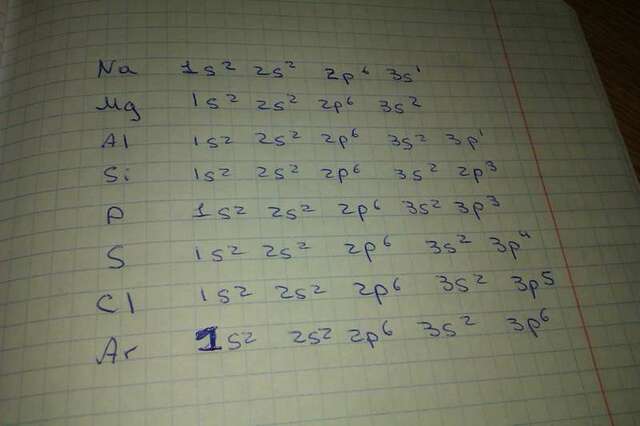 Na 1s² 2s² 2p⁶ 3s¹
Mg 1s² 2s² 2p⁶ 3s²
Al 1s² 2s² 2p⁶ 3s² 3p¹
Si 1s² 2s² 2p⁶ 3s² 2p³
P 1s² 2s² 2p⁶ 3s² 3p³
S 1s² 2s² 2p⁶ 3s² 3p⁴
Cl 1s² 2s² 2p⁶ 3s² 3p⁵
Ar 1s² 2s² 2p⁶ 3s² 3p⁶